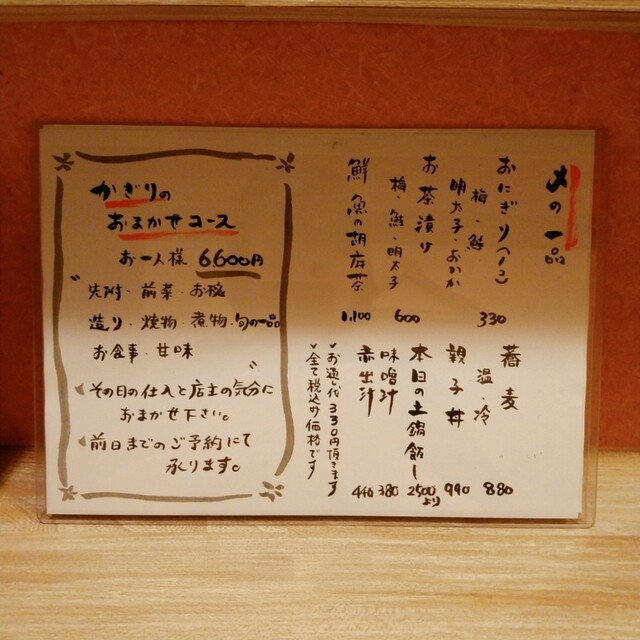 〆の一品
おにぎり(一コ)
梅・鮭
明太子・おかか
330
お茶漬け
梅・鮭・明太子
600
鮮魚の胡麻茶
1,100
蕎麦
温・冷
880
親子丼
990
本日の土鍋飯
2500より
味噌汁
380
赤出汁
440
✓お通し代330円頂きます
✓全て税込み価格です
かぎりの
おまかせコース
お一人様 6,600円
〝先附・前菜・お椀
造り・焼物・煮物・旬の一品
お食事・甘味〟
その日の仕入と店主の気分に
おまかせ下さい。
前日までのご予約にて
承ります。